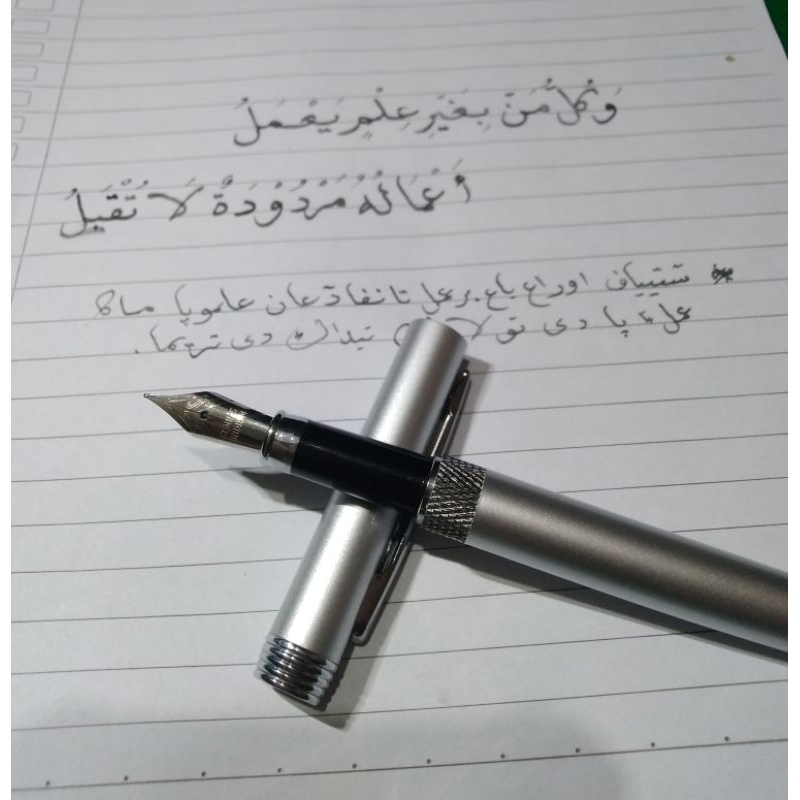 وَكُلُّ مَنْ بِغَيْرِ عِلْمٍ يَعْمَلُ
أَعْمَالُهُ مَرْدُوْدَةٌ لَا تُقْبَلُ
* ستيياف اوراڠ ياڠ برعمل تانفا دڠان علموپا ماك
عملپا دي تولاك تيداك دي تريما.